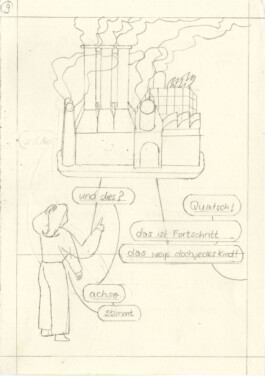 9
und dies?
Quatsch!
das ist Fortschritt
das weiß doch jedes Kind!
achso
Stimmt